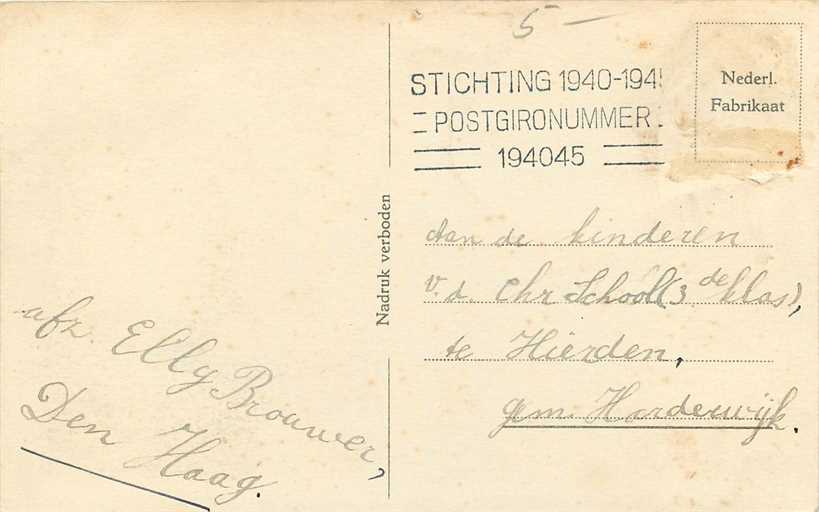 5-
STICHTING 1940-194
POSTGIRONUMMER
194045
Nederl.
Fabrikaat
Nadruk verboden
Aan de kinderen
v.d. Chr School (3de klas),
te Hierden,
gem. Harderwijk.
afz. Elly Brouwer,
Den Haag.